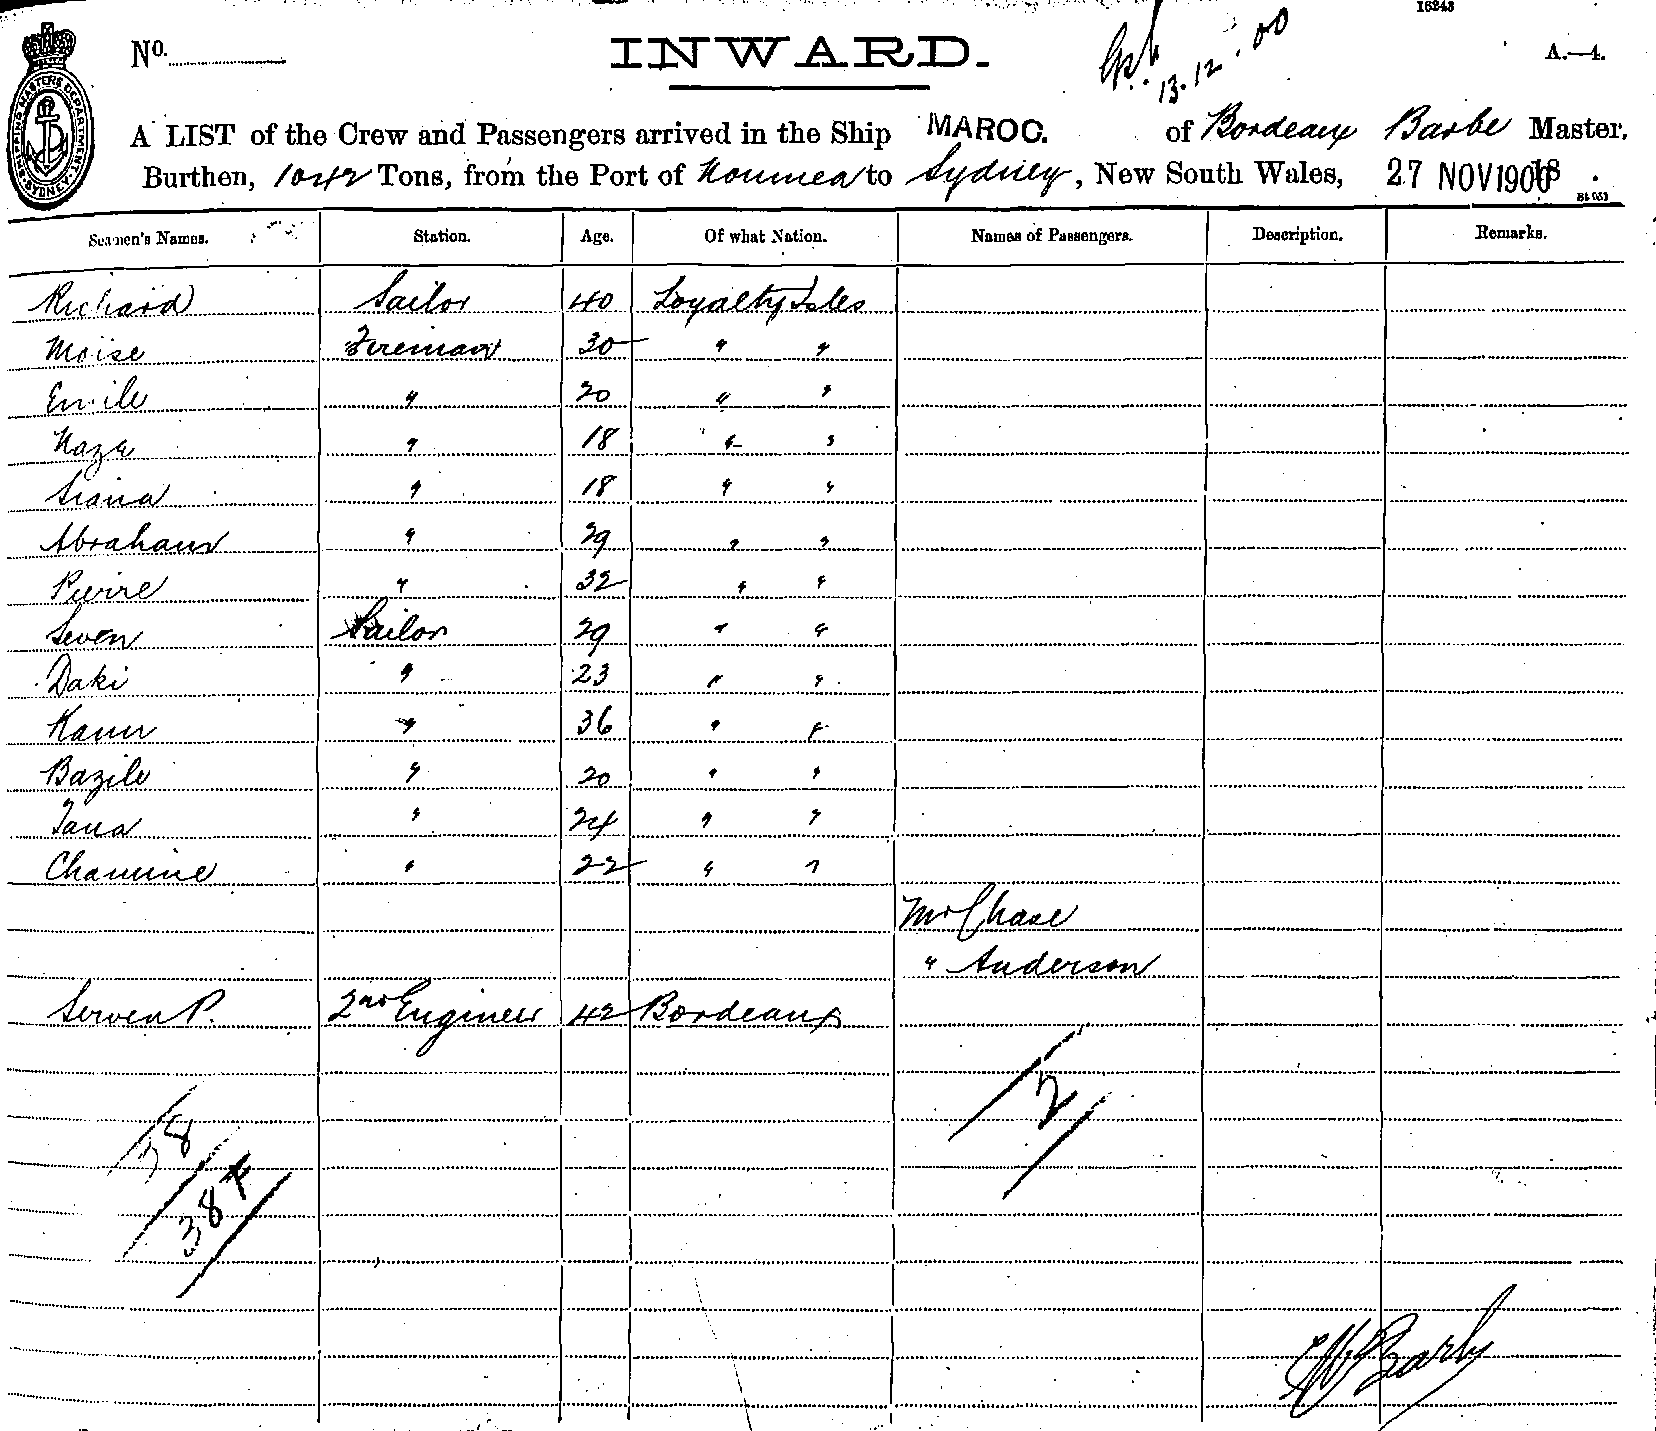 16243
No.
INWARD.
13.12.00
A.—4.
SHIPPING MASTERS DEPARTMENT SYDNEY
A LIST of the Crew and Passengers arrived in the Ship MAROC. of Bordeaux Barbe Master,
Burthen, 1042 Tons, from the Port of Noumea to Sydney, New South Wales, 27 NOV 1900
Seamen's Names. Station. Age. Of what Nation. Names of Passengers. Description. Remarks.
Richard Sailor 40 Loyalty Isles
Moise Fireman 30 " "
Emile " 20 " "
Naza " 18 " "
Siana " 18 " "
Abraham " 29 " "
Pierre " 32 " "
Seven Sailor 29 " "
Daki " 23 " "
Kaun " 36 " "
Bazile " 20 " "
Tana " 24 " "
Chamine " 22 " "
Mr Chase
" Anderson
Serven P. 2nd Engineer 42 Bordeaux
2
38
38